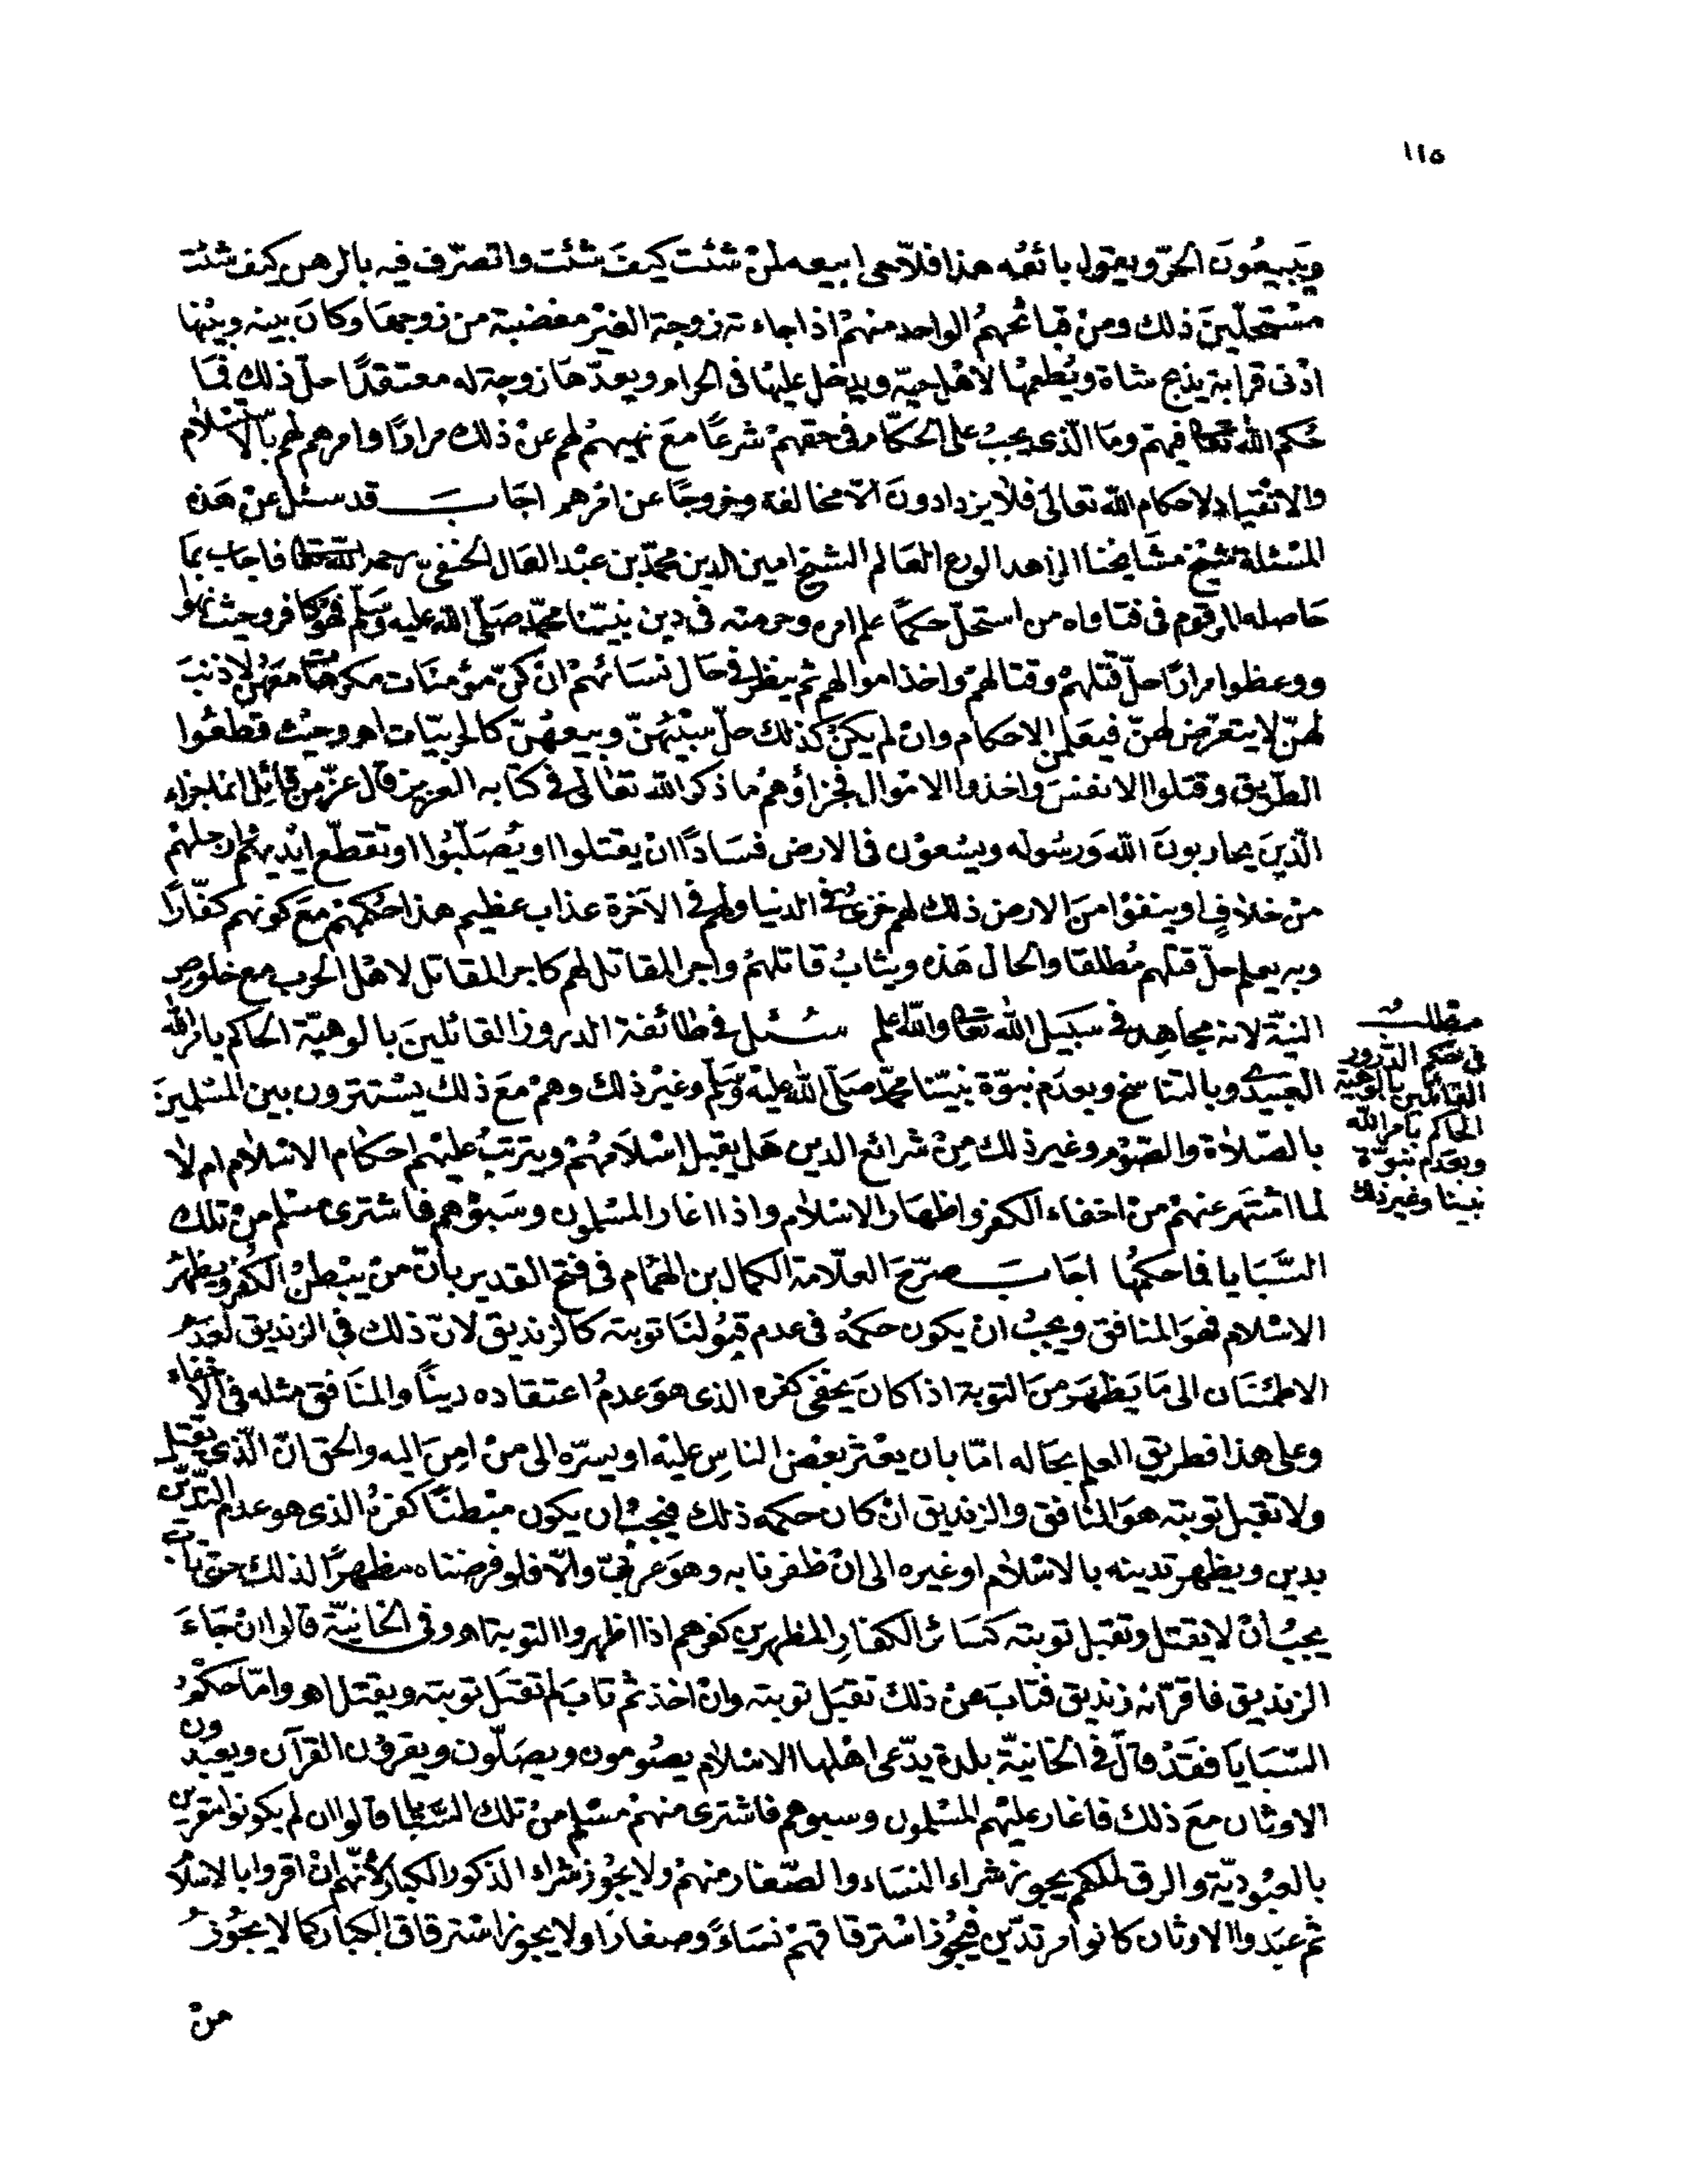 ١١٥
ويَبيعُونَ الحرّ ويقول بائعُه هذا فلّاحى ابيعه لمنْ شئت كيفَ شئت واتصرّف فيه بالرهن كيف شئت
مسْتحلّينَ ذلك ومنْ قبائحهمُ الواحد منهمْ اذا جاءته زوجة الغيْر مغضبة من زوجها وكانَ بينه وبيْنها
ادْنى قرابة يذبح شاة ويُطعمها لاهْل حيّه ويدخل عليْها فى الحرام ويعدّها زوجة له معتقدًا حلّ ذلك فمَا
حُكم الله تعا فيهمْ ومَا الّذى يجبُ على الحكّام فى حقهمْ شرعًا معَ نهيهمْ لهم عنْ ذلك مرارًا وامرهم لهم بالاسْلام
والانْقياد لاحكام الله تعالى فلا يزدادونَ الّا مخالفة وخروجًا عن امْرهم اجَابَ قد سئل عنْ هَذه
المسْئلة شيْخ مشَايخنا الزاهد الورع العَالم الشيخ امين الدين محمّد بن عبْد العَال الحنفىّ رحمه الله تعا فاجاب بمَا
حَاصله المرقوم فى فتاواه من استحلّ حكمًا علم امره وحرمته فى دين نبيّنا محمّد صَلّى الله عليه وَسَلّم فهُوَ كافر وحيْث نهوا
ووعظوا مرارًا حلّ قتْلهمْ وقتالهمْ واخذ اموالهم ثم ينظر فى حَال نسَائهمْ ان كنّ مؤمنَات مكرهَات معَهُمْ لا ذنبَ
لهنّ لا يتعرّض لهنّ فيعَلمن الاحكام وانْ لم يكنّ كذلك حلّ سبْيُهُنّ وبيعهُنّ كالحربيّات اهـ وحيْث قطعُوا
الطَريق وقتلوا الانفسَ واخذوا الامْوال فجزاؤهمْ ما ذكر الله تعَالى فى كتابه العزيز قال عزّ من قائل انما جزاء
الّذينَ يحاربونَ اللهَ وَرسُوله ويسْعوْن فى الارض فسَادًا انْ يقتلوا او يُصَلّبُوا او تقطّع ايْديهمْ وارجلهمْ
منْ خلافٍ او ينفوْا منَ الارض ذلك لهم خزىٌ فى الدنيا ولهم فى الآخرة عذاب عظيم هذا حكمهمْ معَ كونهم كفّارًا
وبه يعلم حلّ قتلهم مُطلقا والحال هَذه ويثابُ قاتلهمْ واجر المقاتل لهم كاجر المقاتل لاهْل الحرب مع خلوص
النيّة لانه مجاهِد فى سَبيل الله تعَا والله اعلم سُئل فى طائفة الدروز القائلينَ بالوهيّة الحاكم بامْر الله
العبيدى وبالتناسخ وبعدَم نبوّة نبيّنا محمّد صَلّى الله عليْه وَسَلّم وغيْر ذلك وهمْ معَ ذلك يسْتترون بين المسْلمينَ
بالصّلاة والصّوْم وغير ذلك مِنْ شرائع الدين هَل يقبل إسْلامُهُمْ ويترتبُ عليْهم احكام الاسْلام ام لا
لما اشْتهَر عنهمْ منْ اخفاء الكفر واظهَار الاسْلام واذا اغار المسْلمون وسَبوْهم فاشترى مسْلم منْ تلك
السَّبَايا فما حكمهُا اجَابَ صرّحَ العلّامة الكمال بن الهمَام فى فتح القدير بأنّ منْ يبْطنُ الكفر ويظهرُ
الاسْلام فهوَ المنافق ويجبُ ان يكون حكمهُ فى عدم قبُولنَا توبته كالزنديق لانّ ذلك فى الزنديق لعَدَم
الاطمئنَان الى مَا يَظهَر منَ التوبة اذا كانَ يخفى كفره الذى هوَ عدمُ اعتقاده دينًا والمنَافق مثله فى الاخفاء
وعلى هذا فطريق العلم بحَاله امّا بان يعثر بعْض الناسِ عليْه او يسرّه الى منْ امِنَ اليه والحق انّ الّذى يقتل
ولا تقبل توبته هوَ المنَافق والزنديق انْ كان حكمه ذلك فيجبُ ان يكون مبْطنًا كفرهُ الذى هو عدم التديّن
بدين ويظهر تدينه بالاسْلام او غيره الى انْ ظفرنا به وهوَ عربىّ والّا فلو فرضناه مظهرًا لذلك حتى تابَ
يجبُ أنْ لا يقتل وتقبل توبته كسَائر الكفارِ المظهرين كفرهم اذا اظهروا التوبة اهـ وفى الخانيّة قالوا انْ جَاءَ
الزنديق فاقرّ انه زنديق فتابَ عنْ ذلك تقبَل توبته وانْ اخذ ثم تابَ لم تقبَل توبته ويقتل اهـ وامّا حكْمُ
السّبَايَا فقَدْ قالَ فى الخانيّة بلدة يدّعى اهْلها الاسْلام يصُومون ويصَلّون ويقرؤن القرآن ويعبدون
الاوثان معَ ذلك فاغار عليْهم المسْلمون وسبوهم فاشترى منهمْ مسْلم منْ تلك السَّبايا قالوا ان لم يكونوا مقرين
بالعبُوديّة والرق لملكهم يجوز شراء النسَاء والصّغار منهمْ ولا يجُوز شراء الذكور الكبار لأنّهم انْ اقروا بالاسْلام
ثم عبَدوا الاوثان كانوا مرتدّين فيجُوز اسْترقاقهمْ نسَاءً وصغارًا ولا يجوز اسْترقاق الكبار كما لا يجُوزُ
منْ
مطلب
فى حكم الدّروز
القائلين بالوهية
الحاكم بامر الله
وبعَدم نبوّة
نبينا وغير ذلك